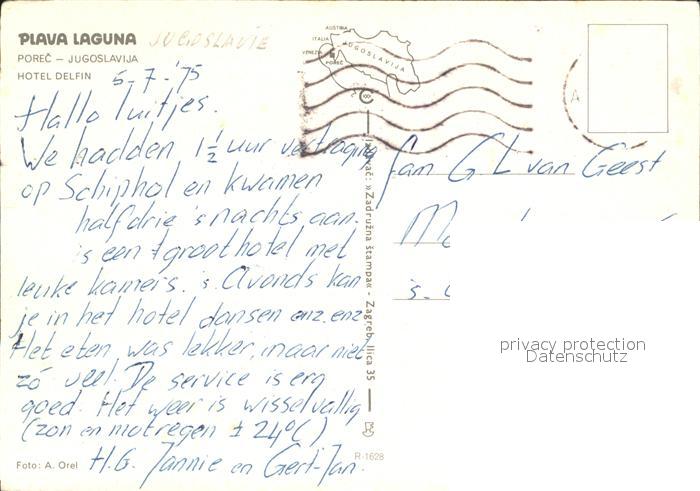 PLAVA LAGUNA JUGOSLAVIE
POREČ — JUGOSLAVIJA
HOTEL DELFIN 5-7-'75
Hallo luitjes.
We hadden 1½ uur vertraging
op Schiphol en kwamen
halfdrie 's nachts aan.
is een groot hotel met
leuke kamers. 's Avonds kan
je in het hotel dansen enz. enz.
Het eten was lekker, maar niet
zó veel. De service is erg
goed. Het weer is wisselvallig
(zon en motregen ± 24°C)
H.G. Jannie en Gert-Jan.
Foto: A. Orel
R-1628
AUSTRIA
ITALIA
VENEZIA
JUGOSLAVIJA
POREČ
»Zadružna štampa« - Zagreb, Ilica 35
fam G L van Geest
privacy protection
Datenschutz